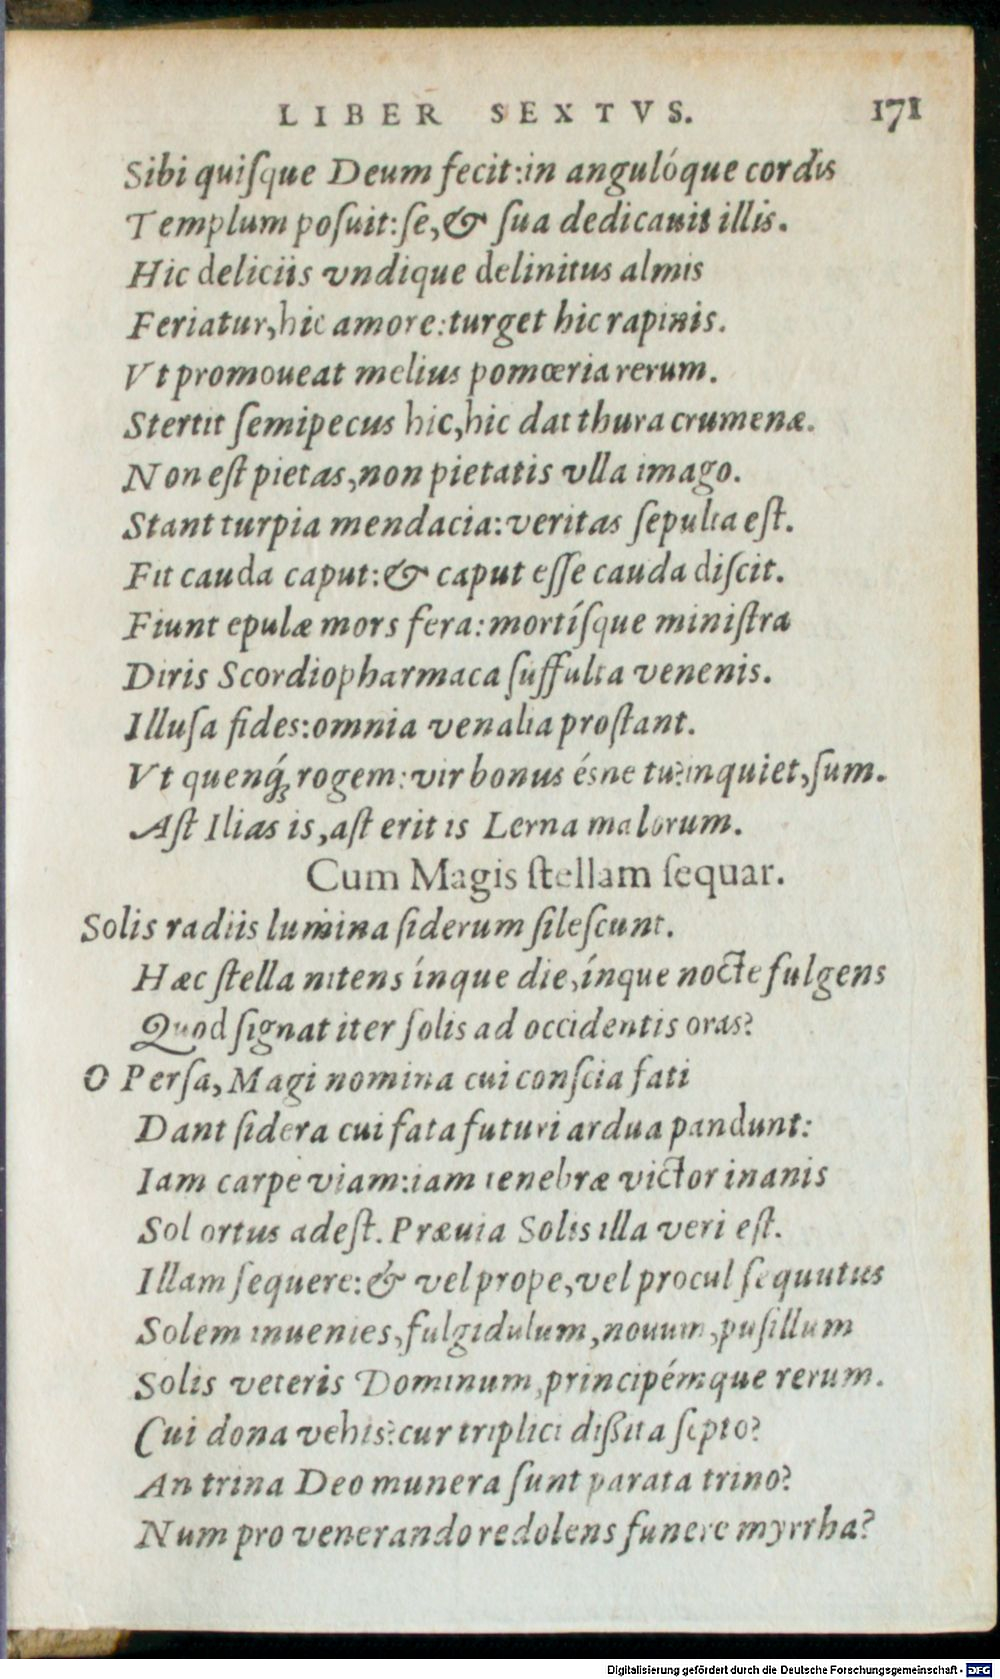 LIBER SEXTVS. 171
Sibi quiſque Deum fecit:in angulóque cordis
Templum poſuit:ſe,& ſua dedicauit illis.
Hic deliciis vndique delinitus almis
Feriatur,hic amore:turget hic rapinis.
Vt promoueat melius pomœria rerum.
Stertit ſemipecus hic,hic dat thura crumenæ.
Non eſt pietas,non pietatis vlla imago.
Stant turpia mendacia:veritas ſepulta eſt.
Fit cauda caput:& caput eſſe cauda diſcit.
Fiunt epulæ mors fera:mortíſque miniſtra
Diris Scordiopharmaca ſuffulta venenis.
Illuſa fides:omnia venalia proſtant.
Vt quenq́ꝫ rogem:vir bonus ésne tu?inquiet,ſum.
Aſt Ilias is,aſt erit is Lerna malorum.
Cum Magis ſtellam ſequar.
Solis radiis lumina ſiderum ſileſcunt.
Hæc ſtella nitens ínque die,ínque nocte fulgens
Quod ſignat iter ſolis ad occidentis oras?
O Perſa, Magi nomina cui conſcia fati
Dant ſidera cui fata futuri ardua pandunt:
Iam carpe viam:iam tenebræ victor inanis
Sol ortus adeſt. Præuia Solis illa veri eſt.
Illam ſequere:& vel prope,vel procul ſequutus
Solem inuenies,fulgidulum,nouum,puſillum
Solis veteris Dominum,principémque rerum.
Cui dona vehis?cur triplici diſsita ſepto?
An trina Deo munera ſunt parata trino?
Num pro venerando redolens funere myrrha?
Digitalisierung gefördert durch die Deutsche Forschungsgemeinschaft - DFG